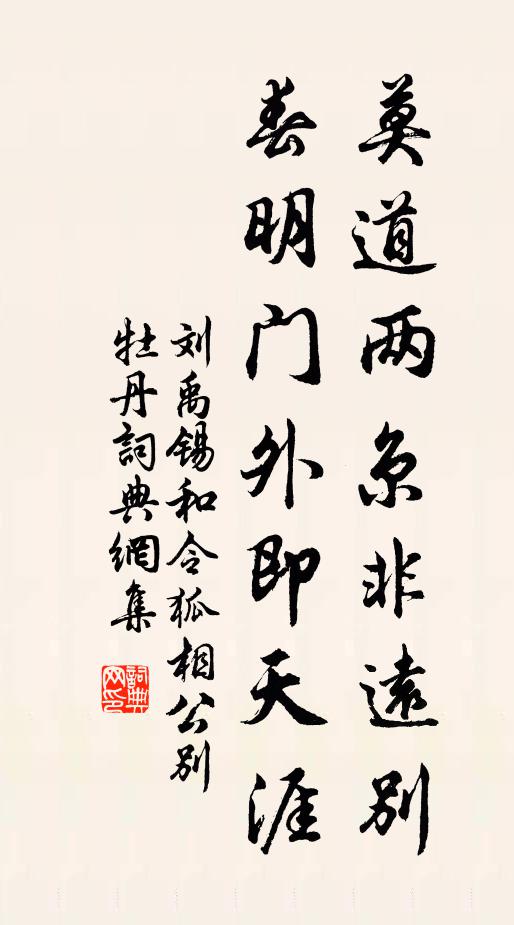 莫道两京非遠别
春明门外即天涯
刘禹锡和令狐相公别
牡丹詞典網集
詞典网印